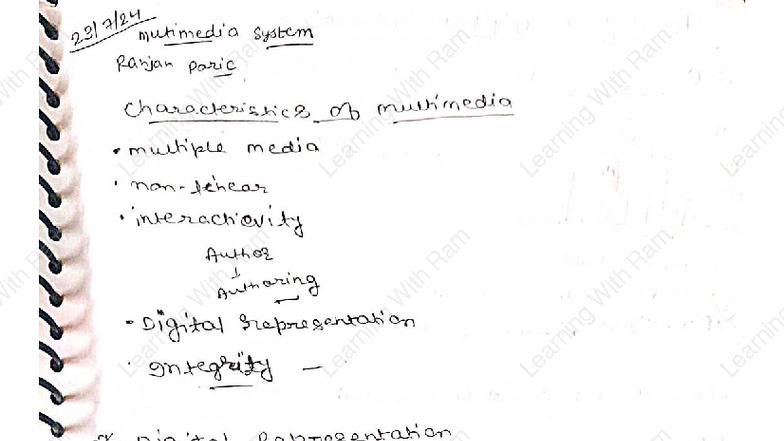 23/7/24
Mutimedia System
Ranjan Paric
Characteristics of multimedia
• multiple media
• non-linear
• interactivity
Author
↓
Authoring
• Digital representation
• Integrity —
Digital Representation
Learning With Ram